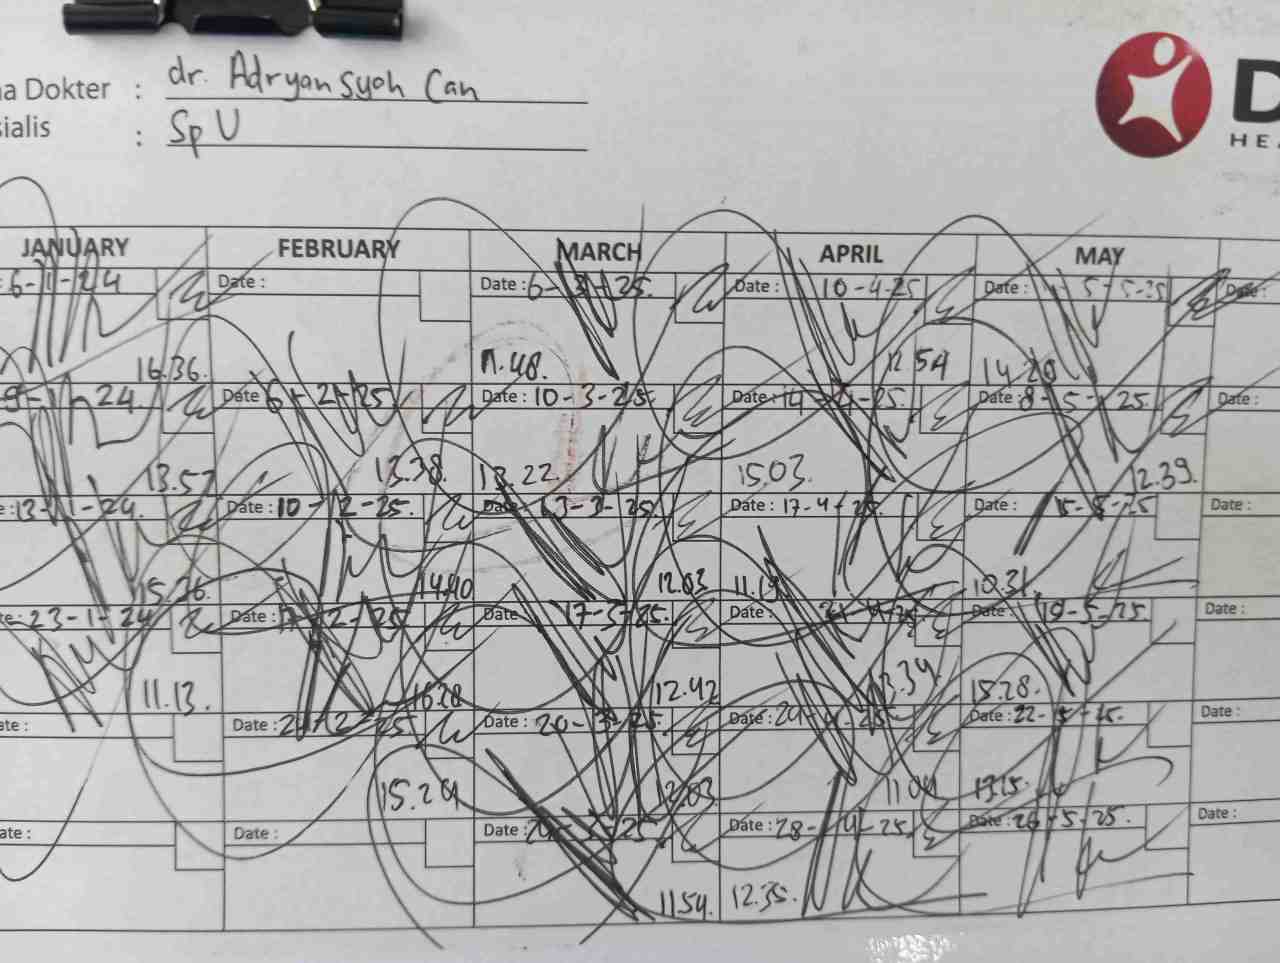 a Dokter : dr. Adryansyah Can
ialis : Sp U
D
HEA
JANUARY FEBRUARY MARCH APRIL MAY
6-1-24 Date : Date : 6-3-25. Date : 10-4-25 Date : 5-5-25 Date :
16.36. 11.48. 12.54 14.20
9-1-24. Date 6-2-25 Date : 10-3-25. Date : 14-4-25. Date : 8-5-25. Date :
13.57 13.38 13.22. 15.03. 12.39.
e : 13-1-24. Date : 10-2-25. Date 13-3-25. Date : 17-4-25. Date : 15-5-25 Date :
15.36 14.40 12.03 11.19 10.31.
te 23-1-24 Date : 2-25 Date 17-3-25. Date : 21-4-25 Date : 19-5-25. Date :
11.13. 16.28 12.42 13.34 15.28.
ate : Date : 24-2-25 Date : 20-3-25 Date : 24-4-25 Date : 22-5-25. Date :
15.24 12.03 13.15.
ate : Date : Date : 25 Date : 28-4-25. Date : 26-5-25. Date :
11.54. 12.35.